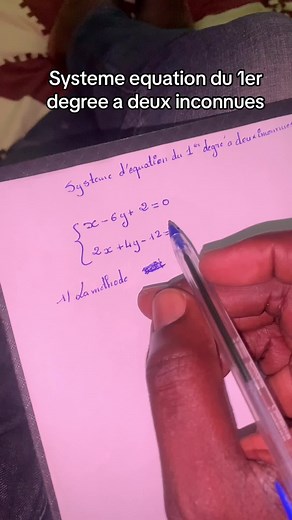 Systeme equation du 1er
degree a deux inconnues
Systeme d'equation du 1er degré a deux inconnues
x - 6y + 2 = 0
2x + 4y - 12 =
1) La methode